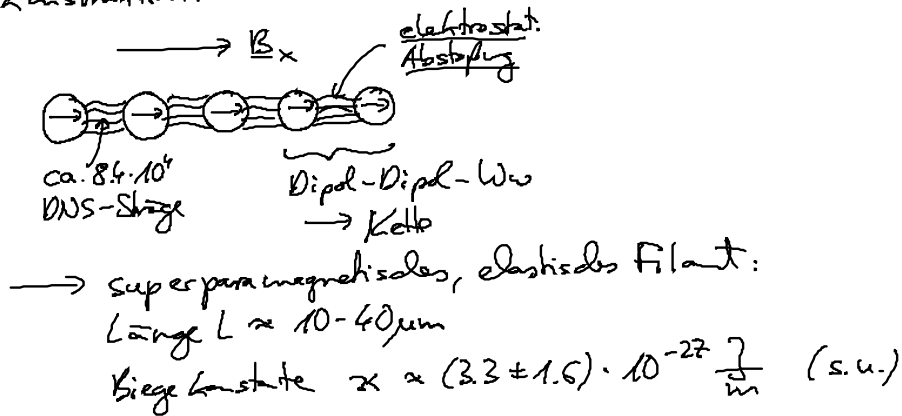 B_x
elektrostat.
Abstoßung
ca. 8.4·10⁴
DNS-Stränge
Dipol-Dipol-Ww
→ Kette
→ superparamagnetisches, elastisches Filament:
Länge L ≈ 10-40 μm
Biegekonstante ϰ ≈ (3.3 ± 1.6) · 10⁻²⁷ J/m (s.u.)